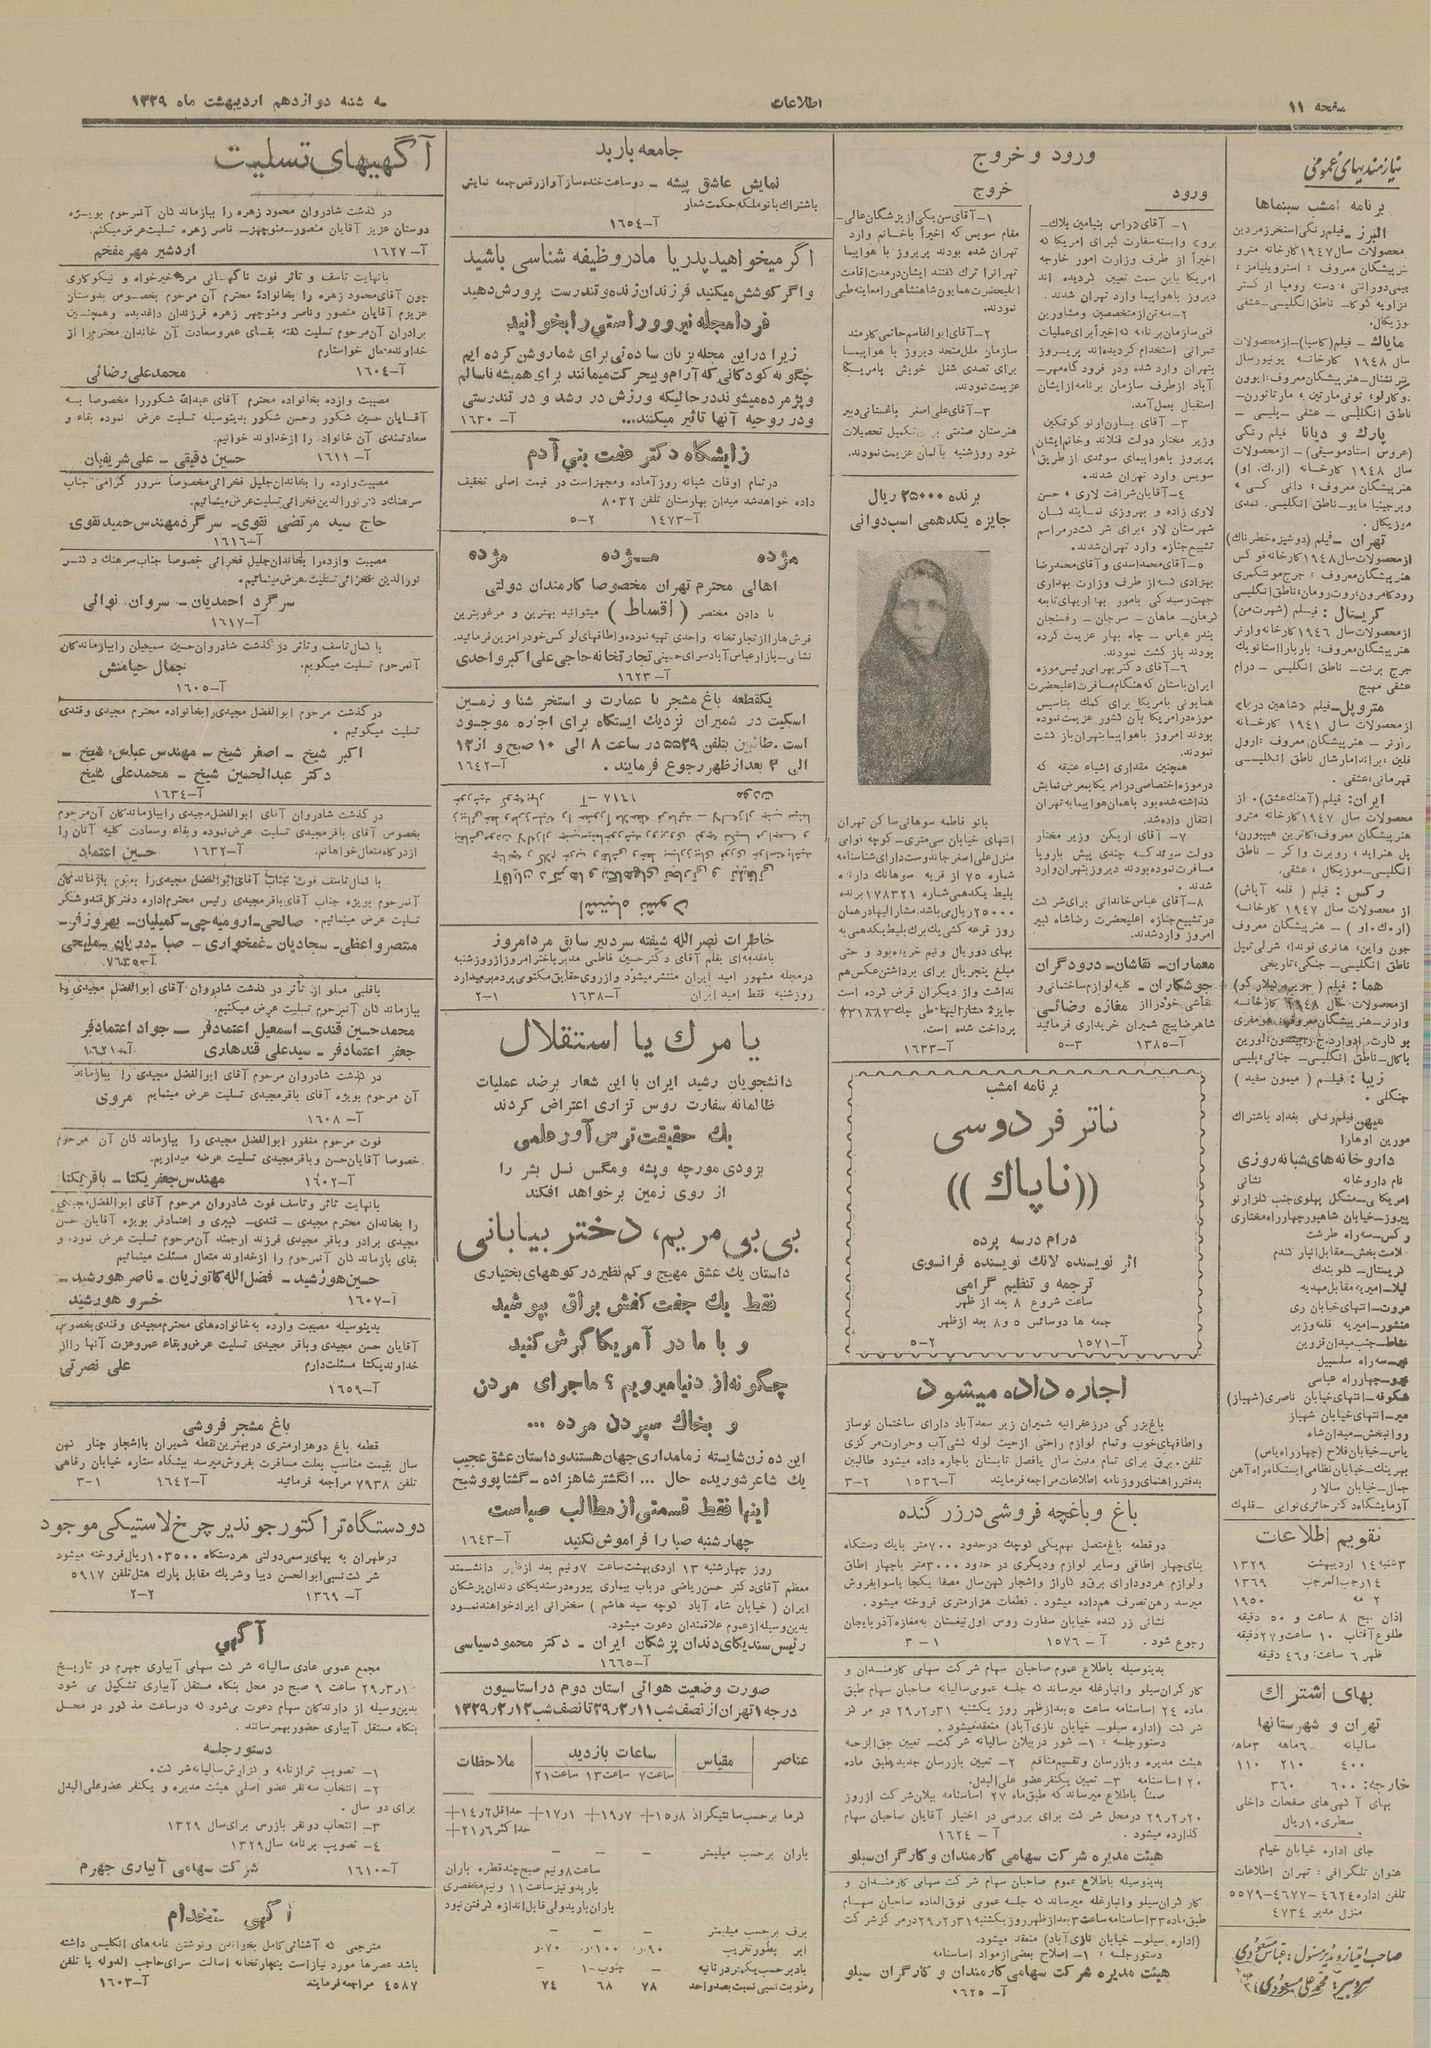 صفحه ۱۱
اطلاعات
سه شنبه دوازدهم اردیبهشت ماه ۱۳۲۹
نیازمندیهای عمومی
برنامه امشب سینماها
البرز ـ فیلم رنگی استخر زمردین
محصولات سال ۱۹۴۷ کارخانه مترو
هنرپیشگان معروف : استرویلیامز :
مایاک ـ فیلم (کاسبا)ـ از محصولات
سال ۱۹۴۸ کارخانه یونیورسال
ناطق انگلیسی ـ عشقی ـ پلیسی ـ
پارک و دیانا فیلم رنگی
(عروس استادموسیقی) ـ از محصولات
سال ۱۹۴۸ کارخانه (ار.ک. او)
تهران ـ فیلم (دوشیزه خطرناک)
از محصولات سال ۱۹۴۸ کارخانه فوکس
کریستال : فیلم (شهرت من)
از محصولات سال ۱۹۴۶ کارخانه وارنر
عشقی مهیج
متروپل ـ فیلم «شاهین دریا»
از محصولات سال ۱۹۴۱ کارخانه
قهرمانی، عشقی .
ایران : فیلم (آهنگ عشق) ، از
محصولات سال ۱۹۴۷ کارخانه مترو
انگلیسی ـ موزیکال ، عشقی .
رکس : فیلم ( قلعه آپاش)
از محصولات سال ۱۹۴۷ کارخانه
(ار.ک.او ) ـ هنرپیشگان معروف
جون واین، هانری فوندا، شرلی تمپل
ناطق انگلیسی ـ جنگی، تاریخی
زیبا : فیلم ( میمون سفید )
جنگلی .
داروخانه‌های شبانه روزی
نام داروخانه نشانی
تقویم اطلاعات
۳شنبه ۱۲ اردیبهشت ۱۳۲۹
۱۴ رجب المرجب ۱۳۶۹
۲ مه ۱۹۵۰
طلوع آفتاب ۱۰ ساعت و ۲۷ دقیقه
ظهر ۶ ساعت و ۴۶ دقیقه
بهای اشتراک
تهران و شهرستانها
سالیانه ۶ماهه ۳ماهه
۴۰۰ ۲۱۰ ۱۱۰
خارجه: ۶۰۰ ۳۶۰
بهای آگهی‌های صفحات داخلی
سطری ۱۰ ریال
جای اداره خیابان خیام
عنوان تلگرافی : تهران اطلاعات
تلفن اداره ۴۶۲۴-۴۶۷۷-۵۵۷۹
منزل مدیر ۴۷۳۴
صاحب امتیاز و مدیر مسئول : عباس مسعودی
سردبیر: محمدعلی مسعودی
ورود و خروج
ورود
وابسته سفارت کبرای امریکا که
اخیراً از طرف وزارت امور خارجه
امریکا باین سمت تعیین گردیده اند
دیروز باهواپیما وارد تهران شدند .
۲ـ سه تن از متخصصین و مشاورین
فنی سازمان برنامه که اخیراً برای عملیات
عمرانی استخدام گردیده‌اند پریروز
بتهران وارد شده و در فرودگاه مهر
آباد از طرف سازمان برنامه از ایشان
استقبال بعمل آمد.
وزیر مختار دولت فنلاند و خانم ایشان
پریروز باهواپیمای سوئدی از طریق
سویس وارد تهران شدند .
۴ـ آقایان شرافت لاری ، حسن
لاری زاده و بهروزی نمایندگان
شهرستان لار ، برای شرکت در مراسم
تشییع جنازه وارد تهران شدند.
۵ـ آقای محمد اسدی و آقای محمدرضا
بهزادی که از طرف وزارت بهداری
جهت رسیدگی بامور بهداریهای تابعه
کرمان ـ ماهان ـ سرجان ـ رفسنجان
بندر عباس ـ چاه بهار عزیمت کرده
بودند باز گشت نمودند.
۶ـ آقای دکتر بهرامی رئیس موزه
ایران باستان که هنگام مسافرت اعلیحضرت
همایونی بامریکا برای کمک بتاسیس
موزه در امریکا بآن کشور عزیمت نموده
بودند امروز باهواپیما بتهران باز گشت
نمودند.
همچنین مقداری اشیاء عتیقه که
در موزه اختصاصی در امریکا بمعرض نمایش
گذاشته شده بود باهمان هواپیما به تهران
انتقال داده شد.
۷ـ آقای اریکن وزیر مختار
دولت سوئد که چندی پیش باروپا
مسافرت نموده بودند دیروز بتهران وارد
شدند .
۸ـ آقای عباس خاندانی برای شرکت
در تشییع جنازه اعلیحضرت رضاشاه کبیر
امروز وارد شدند.
معماران ـ نقاشان ـ درودگران
جوشکاران ـ کلیه لوازم ساختمانی و
نقاشی خود را از مغازه رضائی
شاهرضا پیچ شمیران خریداری فرمائید
آ-۱۳۸۵ ۳-۵
خروج
۱ـ آقای سن یکی از پزشگان عالی
مقام سویس که اخیراً باخانم وارد
تهران شده بودند پریروز با هواپیما
تهران را ترک گفتند ایشان در مدت اقامت
اعلیحضرت همایون شاهنشاهی را معاینه طبی
نمودند.
۲ـ آقای ابوالقاسم حاتمی کارمند
سازمان ملل متحد دیروز با هواپیما
برای تصدی شغل خویش بامریکا
عزیمت نمودند.
۳ـ آقای علی اصغر باغستانی دبیر
هنرستان صنعتی برای تکمیل تحصیلات
خود روز شنبه بآلمان عزیمت نمودند.
برنده ۲۵۰۰۰ ریال
جایزه یکدهمی اسب دوانی
بانو فاطمه سوهانی ساکن تهران
انتهای خیابان سی متری ـ کوچه نوابی
منزل علی اصغر جاندوست دارای شناسنامه
شماره ۷۵ از قریه سوهانک دارنده
بلیط یکدهمی شماره ۱۷۸۳۲۱ برنده
۲۵۰۰۰ ریال می باشد. مشارالیها در همان
روز قرعه کشی یک برگ بلیط یکدهمی به
بهای دوریال و نیم خریده بود و حتی
مبلغ پنجریال برای برداشتن عکس هم
نداشت و از دیگران قرض کرده است
جایزه مشارالیها طی چک ۲۲۱۸۸۷
پرداخت شده است.
آ-۱۶۳۳
برنامه امشب
تاتر فردوسی
((ناپاک))
درام در سه پرده
اثر نویسنده لانک نویسنده فرانسوی
ترجمه و تنظیم گرامی
ساعت شروع ۸ بعد از ظهر
جمعه ها دو سانس ۵ و ۸ بعد از ظهر
آ-۱۵۷۱ ۲-۵
اجاره داده میشود
باغ بزرگی در زعفرانیه شمیران زیر سعدآباد دارای ساختمان نوساز
و اطاقهای خوب و تمام لوازم راحتی از حیث لوله کشی آب و حرارت مرکزی
تلفن، برق برای تمام مدت سال یا فصل تابستان باجاره داده میشود طالبین
بدفتر راهنمای روزنامه اطلاعات مراجعه فرمایند آ-۱۵۳۶ ۲-۳
باغ و باغچه فروشی در زرگنده
دو قطعه باغ متصل بهم یکی کوچک در حدود ۷۰۰ متر بایک دستگاه
بنای چهار اطاقی و سایر لوازم و دیگری در حدود ۳۰۰۰ متر با چهار اطاق
و لوازم هر دو دارای برق و گاراژ و اشجار کهن سال مصفا یکجا یا سوا بفروش
میرسد رهن تصرف هم داده میشود . قطعات هزار متری فروخته میشود .
نشانی زرگنده خیابان سفارت روس اول تیغستان به مغازه آذربایجان
رجوع شود . آ - ۱۵۷۶ ۱-۳
بدینوسیله باطلاع عموم صاحبان سهام شرکت سهامی کارمندان و
کارگران سیلو و انبار غله میرساند که جلسه عمومی سالیانه صاحبان سهام طبق
ماده ۲۴ اساسنامه ساعت ۵ بعد از ظهر روز یکشنبه ۲۹٫۲٫۳۱ در مرکز
شرکت (اداره سیلو ـ خیابان نازی آباد) منعقد میشود .
دستور جلسه : ۱ـ شور در بیلان سالیانه شرکت ـ تعیین حق الزحمه
هیئت مدیره و بازرسان و تقسیم منافع ۲ـ تعیین بازرسان جدید طبق ماده
۲۰ اساسنامه ۳ـ تعیین یکنفر عضو علی البدل.
ضمناً باطلاع میرساند که طبق ماده ۲۷ اساسنامه بیلان شرکت از روز
۲۹٫۲٫۲۰ در محل شرکت برای بررسی در اختیار آقایان صاحبان سهام
گذارده میشود . آ - ۱۶۲۴
هیئت مدیره شرکت سهامی کارمندان و کارگران سیلو
بدینوسیله باطلاع عموم صاحبان سهام شرکت سهامی کارمندان و
کارگران سیلو و انبار غله میرساند که جلسه عمومی فوق العاده صاحبان سهام
(اداره سیلو ـ خیابان نازی آباد) منعقد میشود.
دستور جلسه : ۱ـ اصلاح بعضی از مواد اساسنامه
هیئت مدیره شرکت سهامی کارمندان و کارگران سیلو
آ-۱۶۲۵
جامعه باربد
نمایش عاشق پیشه ـ دو ساعت خنده ساز آواز رقص جمعه نمایش
باشتراک بانو ملکه حکمت شعار
آ-۱۶۵۴
اگر میخواهید پدر یا مادر وظیفه شناسی باشید
و اگر کوشش میکنید فرزندان زنده و تندرست پرورش دهید
فردا مجله نیرو و راستی را بخوانید
زیرا در این مجله بزبان ساده ئی برای شما روشن کرده ایم
چگونه کودکانی که آرام و بیحرکت میمانند برای همیشه ناسالم
و پژمرده میشوند در حالیکه ورزش در رشد و در تندرستی
و در روحیه آنها تاثیر میکند... آ-۱۶۳۰
زایشگاه دکتر عفت بنی آدم
در تمام اوقات شبانه روز آماده و مجهز است در قیمت اصلی تخفیف
داده خواهد شد میدان بهارستان تلفن ۸۰۳۲
آ-۱۴۷۳ ۲-۵
مژده مژده مژده
اهالی محترم تهران مخصوصا کارمندان دولتی
با دادن مختصر ( اقساط ) میتوانید بهترین و مرغوبترین
فرش ها را از تجارتخانه واحدی تهیه نموده و اطاقهای لوکس خود را مزین فرمائید.
نشانی ـ بازار عباس آباد سرای حسینی تجارتخانه حاجی علی اکبر واحدی
آ-۱۶۲۳
یکقطعه باغ مشجر با عمارت و استخر شنا و زمین
اسکیت در شمیران نزدیک ایستگاه برای اجاره موجود
است. طالبین بتلفن ۵۵۲۹ در ساعت ۸ الی ۱۰ صبح و از ۱۲
الی ۳ بعد از ظهر رجوع فرمایند . آ-۱۶۴۲
اشتباه نشود
خاطرات نصرالله شیفته سردبیر سابق مرد امروز
بامقدمه‌ای بقلم آقای دکتر حسین فاطمی مدیر باختر امروز از روز شنبه
در مجله مشهور امید ایران منتشر میشود و از روی حقایق مکتومی پرده برمیدارد
روز شنبه فقط امید ایران آ-۱۶۳۸ ۱-۲
یا مرگ یا استقلال
دانشجویان رشید ایران با این شعار برضد عملیات
ظالمانه سفارت روس تزاری اعتراض کردند
یک حقیقت ترس آور علمی
بزودی مورچه و پشه و مگس نسل بشر را
از روی زمین برخواهد افکند
بی بی مریم، دختر بیابانی
داستان یک عشق مهیج و کم نظیر در کوههای بختیاری
فقط یک جفت کفش براق بپوشید
و با ما در آمریکا گرش کنید
چگونه از دنیا میرویم ؟ ماجرای مردن
و بخاک سپردن مرده ...
این ده زن شایسته زمامداری جهان هستند و داستان عشق عجیب
یک شاعر شوریده حال ... انگشتر شاهزاده ـ گشتاپو و شیح
اینها فقط قسمتی از مطالب صباست
چهارشنبه صبا را فراموش نکنید آ-۱۶۴۳
روز چهارشنبه ۱۳ اردیبهشت ساعت ۷ و نیم بعد از ظهر دانشمند
معظم آقای دکتر حسن ریاضی در باب بیماری پیوره در سندیکای دندان پزشکان
ایران ( خیابان شاه آباد کوچه سید هاشم ) سخنرانی ایراد خواهند نمود
بدین وسیله از عموم علاقمندان دعوت میشود.
رئیس سندیکای دندان پزشکان ایران ـ دکتر محمود سیاسی
آ-۱۶۶۵
صورت وضعیت هوائی استان دوم در استاسیون
درجه ۱ تهران از نصف شب ۲۹٫۲٫۱۱ تا نصف شب ۱۳۲۹٫۲٫۱۲
عناصر مقیاس ساعات بازدید ملاحظات
ساعت ۷ ساعت ۱۳ ساعت ۲۱
گرما برحسب سانتیگراد ۱۵٫۸+ ۱۹٫۷+ ۱۷٫۱+ حداقل ۱۴٫۲+
حداکثر ۲۱٫۶+
باران برحسب میلیمتر ـ ـ ـ
ساعت ۸ و نیم صبح چند قطره باران
بارید و نیز ساعت ۱۱ و نیم مختصری
باران بارید ولی قابل اندازه گرفتن نبود
برف برحسب میلیمتر ـ ـ ـ
باد برحسب یکمتر در ثانیه ـ جنوب-۱ ـ
رطوبت نسبی نسبت بصد واحد ۷۸ ۶۸ ۷۴
آگهیهای تسلیت
در گذشت شادروان محمود زهره را ببازماندگان آنمرحوم بویژه
دوستان عزیز آقایان منصور ـ منوچهر ـ ناصر زهره تسلیت عرض میکنم.
آ-۱۶۲۷ اردشیر مهر مفخم
بانهایت تاسف و تاثر فوت ناگهانی مرد خیرخواه و نیکوکاری
چون آقای محمود زهره را بخانوادهٔ محترم آن مرحوم بخصوص بدوستان
عزیزم آقایان منصور و ناصر و منوچهر زهره فرزندان داغدیده و همچنین
برادران آن مرحوم تسلیت گفته بقای عمر و سعادت آن خاندان محترم را از
خداوند متعال خواستارم
آ-۱۶۰۴ محمدعلی رضائی
مصیبت وارده بخانواده محترم آقای عبدالله شکور را مخصوصا به
آقایان حسین شکور و حسن شکور بدینوسیله تسلیت عرض نموده بقاء و
سعادتمندی آن خانواده را از خداوند خواهانیم.
آ-۱۶۱۱ حسین دقیقی ـ علی شریفیان
مصیبت وارده را بخاندان جلیل فخرائی مخصوصا سرور گرامی جناب
سرهنگ دکتر نورالدین فخرائی تسلیت عرض مینمائیم.
حاج سید مرتضی نقوی ـ سرگرد مهندس حمید نقوی
آ-۱۶۱۶
مصیبت وارده را بخاندان جلیل فخرائی خصوصا جناب سرهنگ دکتر
نورالدین فخرائی تسلیت عرض مینمائیم.
سرگرد احمدیان ـ سروان نوائی
آ-۱۶۱۷
با کمال تاسف و تاثر در گذشت شادروان حسین سمیعیان را ببازماندگان
آنمرحوم تسلیت میگویم. جمال حیامنش
آ-۱۶۰۵
در گذشت مرحوم ابوالفضل مجیدی را بخانواده محترم مجیدی و قندی
تسلیت میگوئیم .
اکبر شیخ ـ اصغر شیخ ـ مهندس عباس شیخ ـ
دکتر عبدالحسین شیخ ـ محمدعلی شیخ
آ-۱۶۳۴
در گذشت شادروان آقای ابوالفضل مجیدی را ببازماندگان آن مرحوم
بخصوص آقای باقر مجیدی تسلیت عرض نموده و بقاء و سعادت کلیه آنان را
از درگاه متعال خواهانم. آ-۱۶۳۲ حسین اعتماد
با کمال تاسف فوت جناب آقای ابوالفضل مجیدی را بعموم بازماندگان
آنمرحوم بویژه جناب آقای باقر مجیدی رئیس محترم اداره دفتر کل قندوشکر
تسلیت عرض مینمائیم. صالحی ـ ارومیه‌چی ـ کمیلیان ـ بهروزفر ـ
منتصر و اعظمی ـ سجادیان ـ غمخواری ـ صبا ـ ددیان ـ ملیحی
باقلبی مملو از تأثر در گذشت شادروان آقای ابوالفضل مجیدی را
ببازماندگان آنمرحوم تسلیت عرض میکنیم.
محمدحسین قندی ـ اسمعیل اعتمادفر ـ جواد اعتمادفر
جعفر اعتمادفر ـ سیدعلی قندهاری آ-۱۶۲۱
در گذشت شادروان مرحوم آقای ابوالفضل مجیدی را ببازماندگان
آن مرحوم بویژه آقای باقر مجیدی تسلیت عرض مینمایم مروی
آ-۱۶۰۸
فوت مرحوم مغفور ابوالفضل مجیدی را ببازماندگان آن مرحوم
خصوصا آقایان حسن و باقر مجیدی تسلیت عرضه میداریم.
آ-۱۶۰۲ مهندس جعفر یکتا ـ باقر یکتا
بانهایت تاثر و تاسف فوت شادروان مرحوم آقای ابوالفضل مجیدی
را بخاندان محترم مجیدی ـ قندی ـ کبیری و اعتمادفر بویژه آقایان حسن
مجیدی برادر و باقر مجیدی فرزند ارجمند آن مرحوم تسلیت عرض نموده و
بقای بازماندگان آنمرحوم را از خداوند متعال مسئلت مینمائیم
حسین هورشید ـ فضل الله کاتوزیان ـ ناصر هورشید ـ
آ-۱۶۰۷ خسرو هورشید
بدینوسیله مصیبت وارده به خانواده های محترم مجیدی و قندی بخصوص
آقایان حسن مجیدی و باقر مجیدی تسلیت عرض و بقاء عمر و عزت آنها را از
خداوند یکتا مسئلت دارم علی نصرتی
آ-۱۶۵۹
باغ مشجر فروشی
قطعه باغ دو هزار متری در بهترین نقطه شمیران بااشجار چنار کهن
سال بقیمت مناسب بعلت مسافرت بفروش میرسد بنگاه ستاره خیابان رفاهی
تلفن ۷۹۳۸ مراجعه فرمائید آ-۱۶۴۲ ۱-۳
دو دستگاه تراکتور جوندیر چرخ لاستیکی موجود
در طهران به بهای رسمی دولتی هر دستگاه ۱۰۳۵۰۰ ریال فروخته میشود
شرکت نسبی ابوالحسن دیبا و شریک مقابل پارک هتل تلفن ۵۹۱۷
آ-۱۳۶۹ ۲-۲
آگهی
مجمع عمومی عادی سالیانه شرکت سهامی آبیاری جهرم در تاریخ
۲۹٫۳٫۱۰ ساعت ۹ صبح در محل بنگاه مستقل آبیاری تشکیل می شود
بدین وسیله از دارندگان سهام دعوت می‌شود که در ساعت مذکور در محل
بنگاه مستقل آبیاری حضور بهمرسانند .
دستور جلسه
۱ـ تصویب ترازنامه و گزارش سالیانه شرکت.
۲ـ انتخاب سه نفر عضو اصلی هیئت مدیره و یکنفر عضو علی البدل
برای دو سال .
۳ـ انتخاب دو نفر بازرس برای سال ۱۳۲۹
۴ـ تصویب برنامه سال ۱۳۲۹
آ-۱۶۱۰ شرکت سهامی آبیاری جهرم
آگهی استخدام
مترجمی که آشنائی کامل بخواندن و نوشتن نامه های انگلیسی داشته
باشد عصرها مورد نیاز است بتجارتخانه اصالت سرای حاجب الدوله یا تلفن
۴۵۸۷ مراجعه فرمایند آ-۱۶۰۳